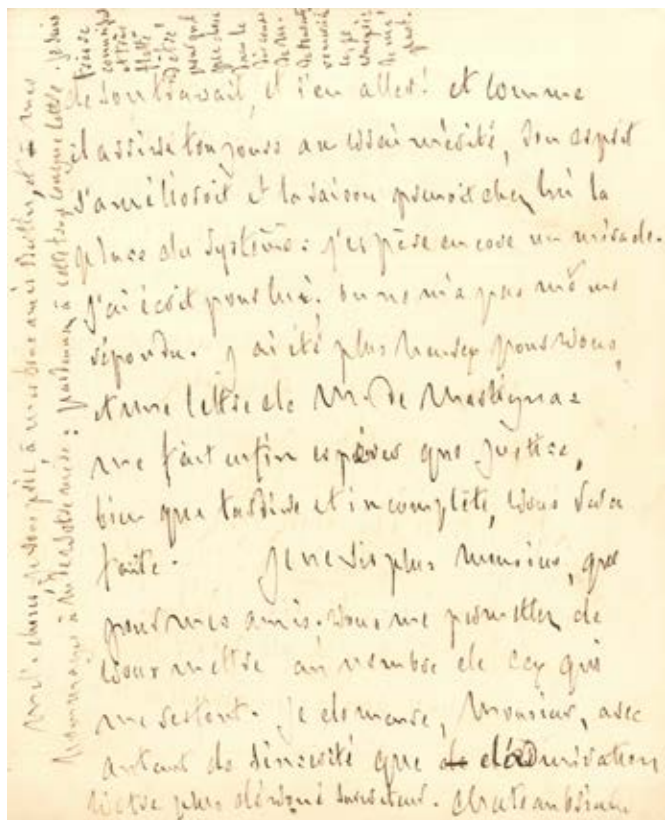 de son travail, et s'en aller! et comme
il arrive toujours au vrai mérite, son esprit
s'amélioroit et la raison prenoit chez lui la
place du système: j'espère encore un miracle.
j'ai écrit pour lui. on ne m'a pas même
répondu. j'ai été plus heureux pour vous,
et une lettre de Mr. de Martignac
me fait enfin espérer que justice,
bien que tardive et incomplète, vous sera
faite. Je ne vis plus monsieur, que
pour mes amis. vous me permettez de
vous mettre au nombre de ceux qui
me restent. Je demeure, Monsieur, avec
autant de sincérité que d'admiration
Votre plus dévoué serviteur. Chateaubriand
Mille choses, je vous prie, à mes bons amis et à mes
hommages à Mde votre mère: pardonnez à cette trop longue lettre. je suis
et très
flatté
d'être
pour quel
que chose
dans le
discours
de mr.
de ma
part.